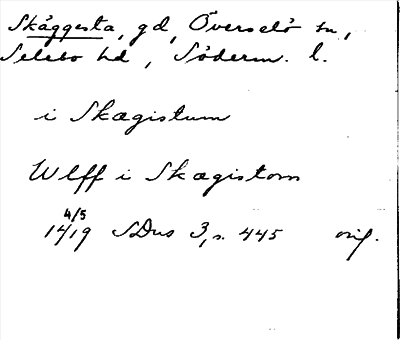 Skäggesta, gd, Överselö sn,
Selebo hd, Söderm. l.
i Skægistum
Wlff i Skægistom
4/5
1419 SDns 3, s. 445 orig.